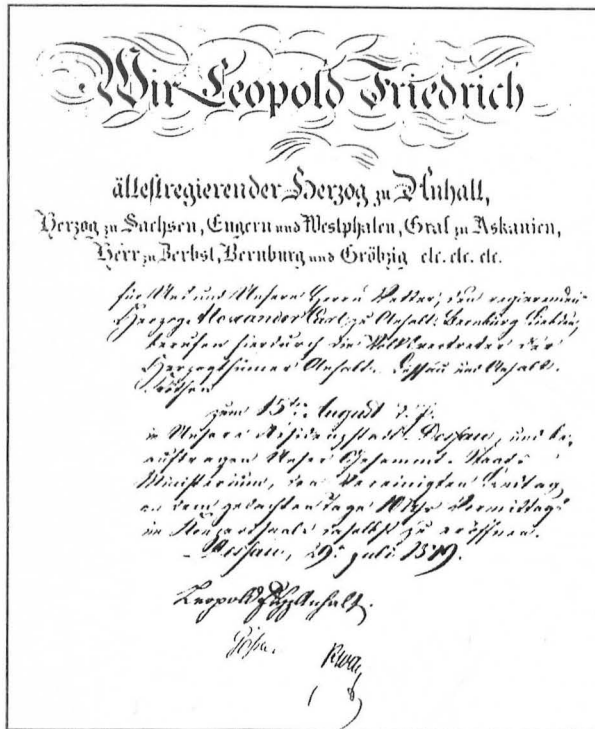 Wir Leopold Friedrich
ältestregierender Herzog zu Anhalt,
Herzog zu Sachsen, Engern und Westphalen, Graf zu Askanien,
Herr zu Zerbst, Bernburg und Gröbzig etc. etc. etc.
für Uns und Unsern Herrn Vetter, den regierenden
Herzog Alexander Carl zu Anhalt-Bernburg Liebden,
berufen hierdurch die Volksvertreter der
Herzogthümer Anhalt-Dessau und Anhalt-
Köthen
zum 15ten August d. J.
in Unsere Residenzstadt Dessau, und be-
auftragen Unser Gesammt-Staats
Ministerium, den Vereinigten Landtag
an dem gedachten Tage 10 Uhr Vormittags
im Konzertsaale daselbst zu eröffnen.
Dessau, 29. Juli 1849.
Leopold Anhalt.